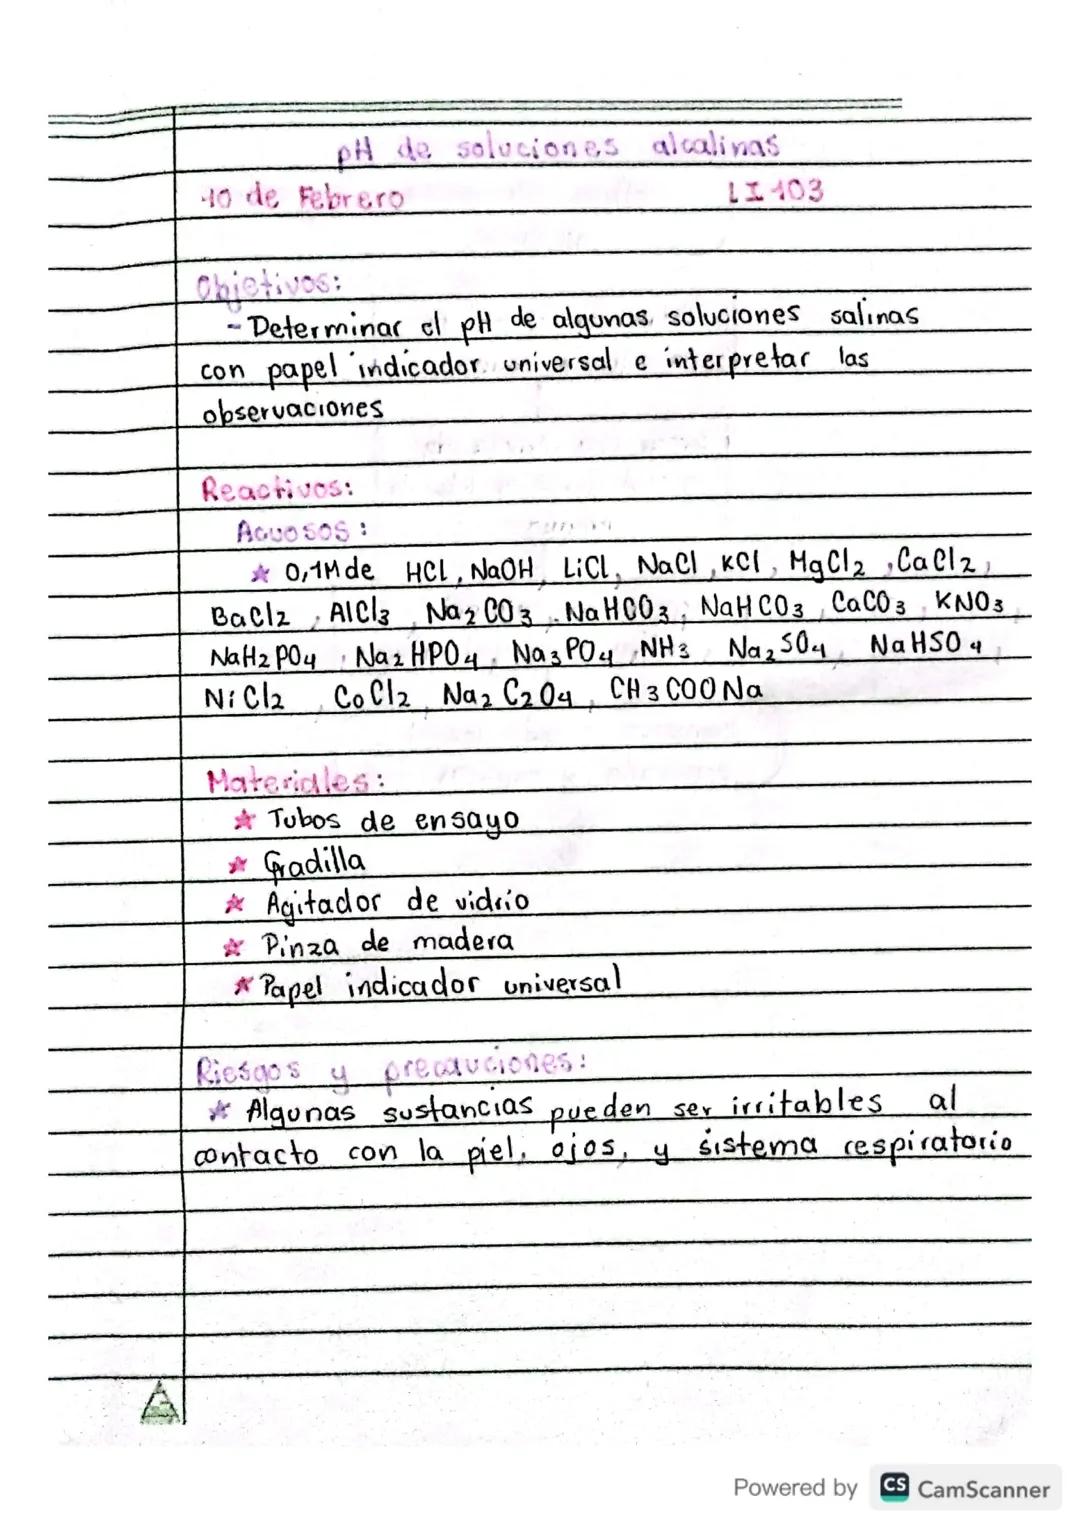 pH de soluciones alcalinas
10 de Febrero LI 103
Objetivos:
- Determinar el pH de algunas soluciones salinas
con papel indicador universal e interpretar las
observaciones
Reactivos:
Acuosos:
☆ 0,1M de HCl, NaOH, LiCl, NaCl, KCl, MgCl2, CaCl2,
BaCl2, AlCl3, Na2CO3, NaHCO3, NaHCO3, CaCO3, KNO3,
NaH2PO4, Na2HPO4, Na3PO4, NH3, Na2SO4, NaHSO4,
NiCl2, CoCl2, Na2C2O4, CH3COONa
Materiales:
☆ Tubos de ensayo
☆ Gradilla
☆ Agitador de vidrio
☆ Pinza de madera
☆ Papel indicador universal
Riesgos y precauciones:
☆ Algunas sustancias pueden ser irritables al
contacto con la piel, ojos, y sistema respiratorio
Powered by CS CamScanner